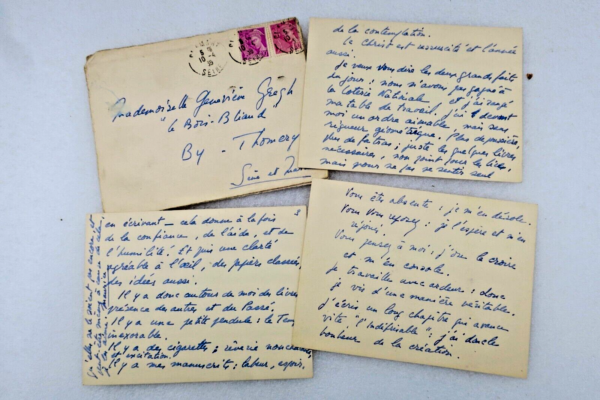 Mademoiselle Geneviève Gregh
le Bois-Blond
By - Thomery
Seine et Marne
Vous êtes absente : je m'en désole.
Vous vous reposez : je l'espère et m'en
réjouis.
Vous pensez à moi : j'ose le croire
et m'en console.
Je travaille avec ardeur : donc
je vis d'une manière véritable.
J'écris un long chapitre qui avance
vite "l' " ; j'ai donc le
bonheur de la création.
de la contemplation.
Le Christ est ressuscité et l'année
aussi.
Je veux vous dire les deux grands faits
du jour : nous n'avons pas gagné à
la Loterie Nationale et j'ai rangé
ma table de travail. J'ai devant
moi un ordre aimable, mais sans
rigueur géométrique. Plus de poussière,
plus de fatras ; juste les quelques livres
nécessaires, non point tous les lire,
mais pour ne pas se sentir seul
3
en écrivant - cela donne à la fois
de la confiance, de l'aide, et de
l'humilité. Et puis une clarté
agréable à l'œil, des papiers classés,
des idées aussi.
Il y a donc autour de moi des livres
présence des autres et du Passé.
Il y a une petite pendule : le Temps
inexorable.
Il y a des cigarettes : rêverie nonchalante
et incitation.
Il y a mes manuscrits : labeur, espoir.